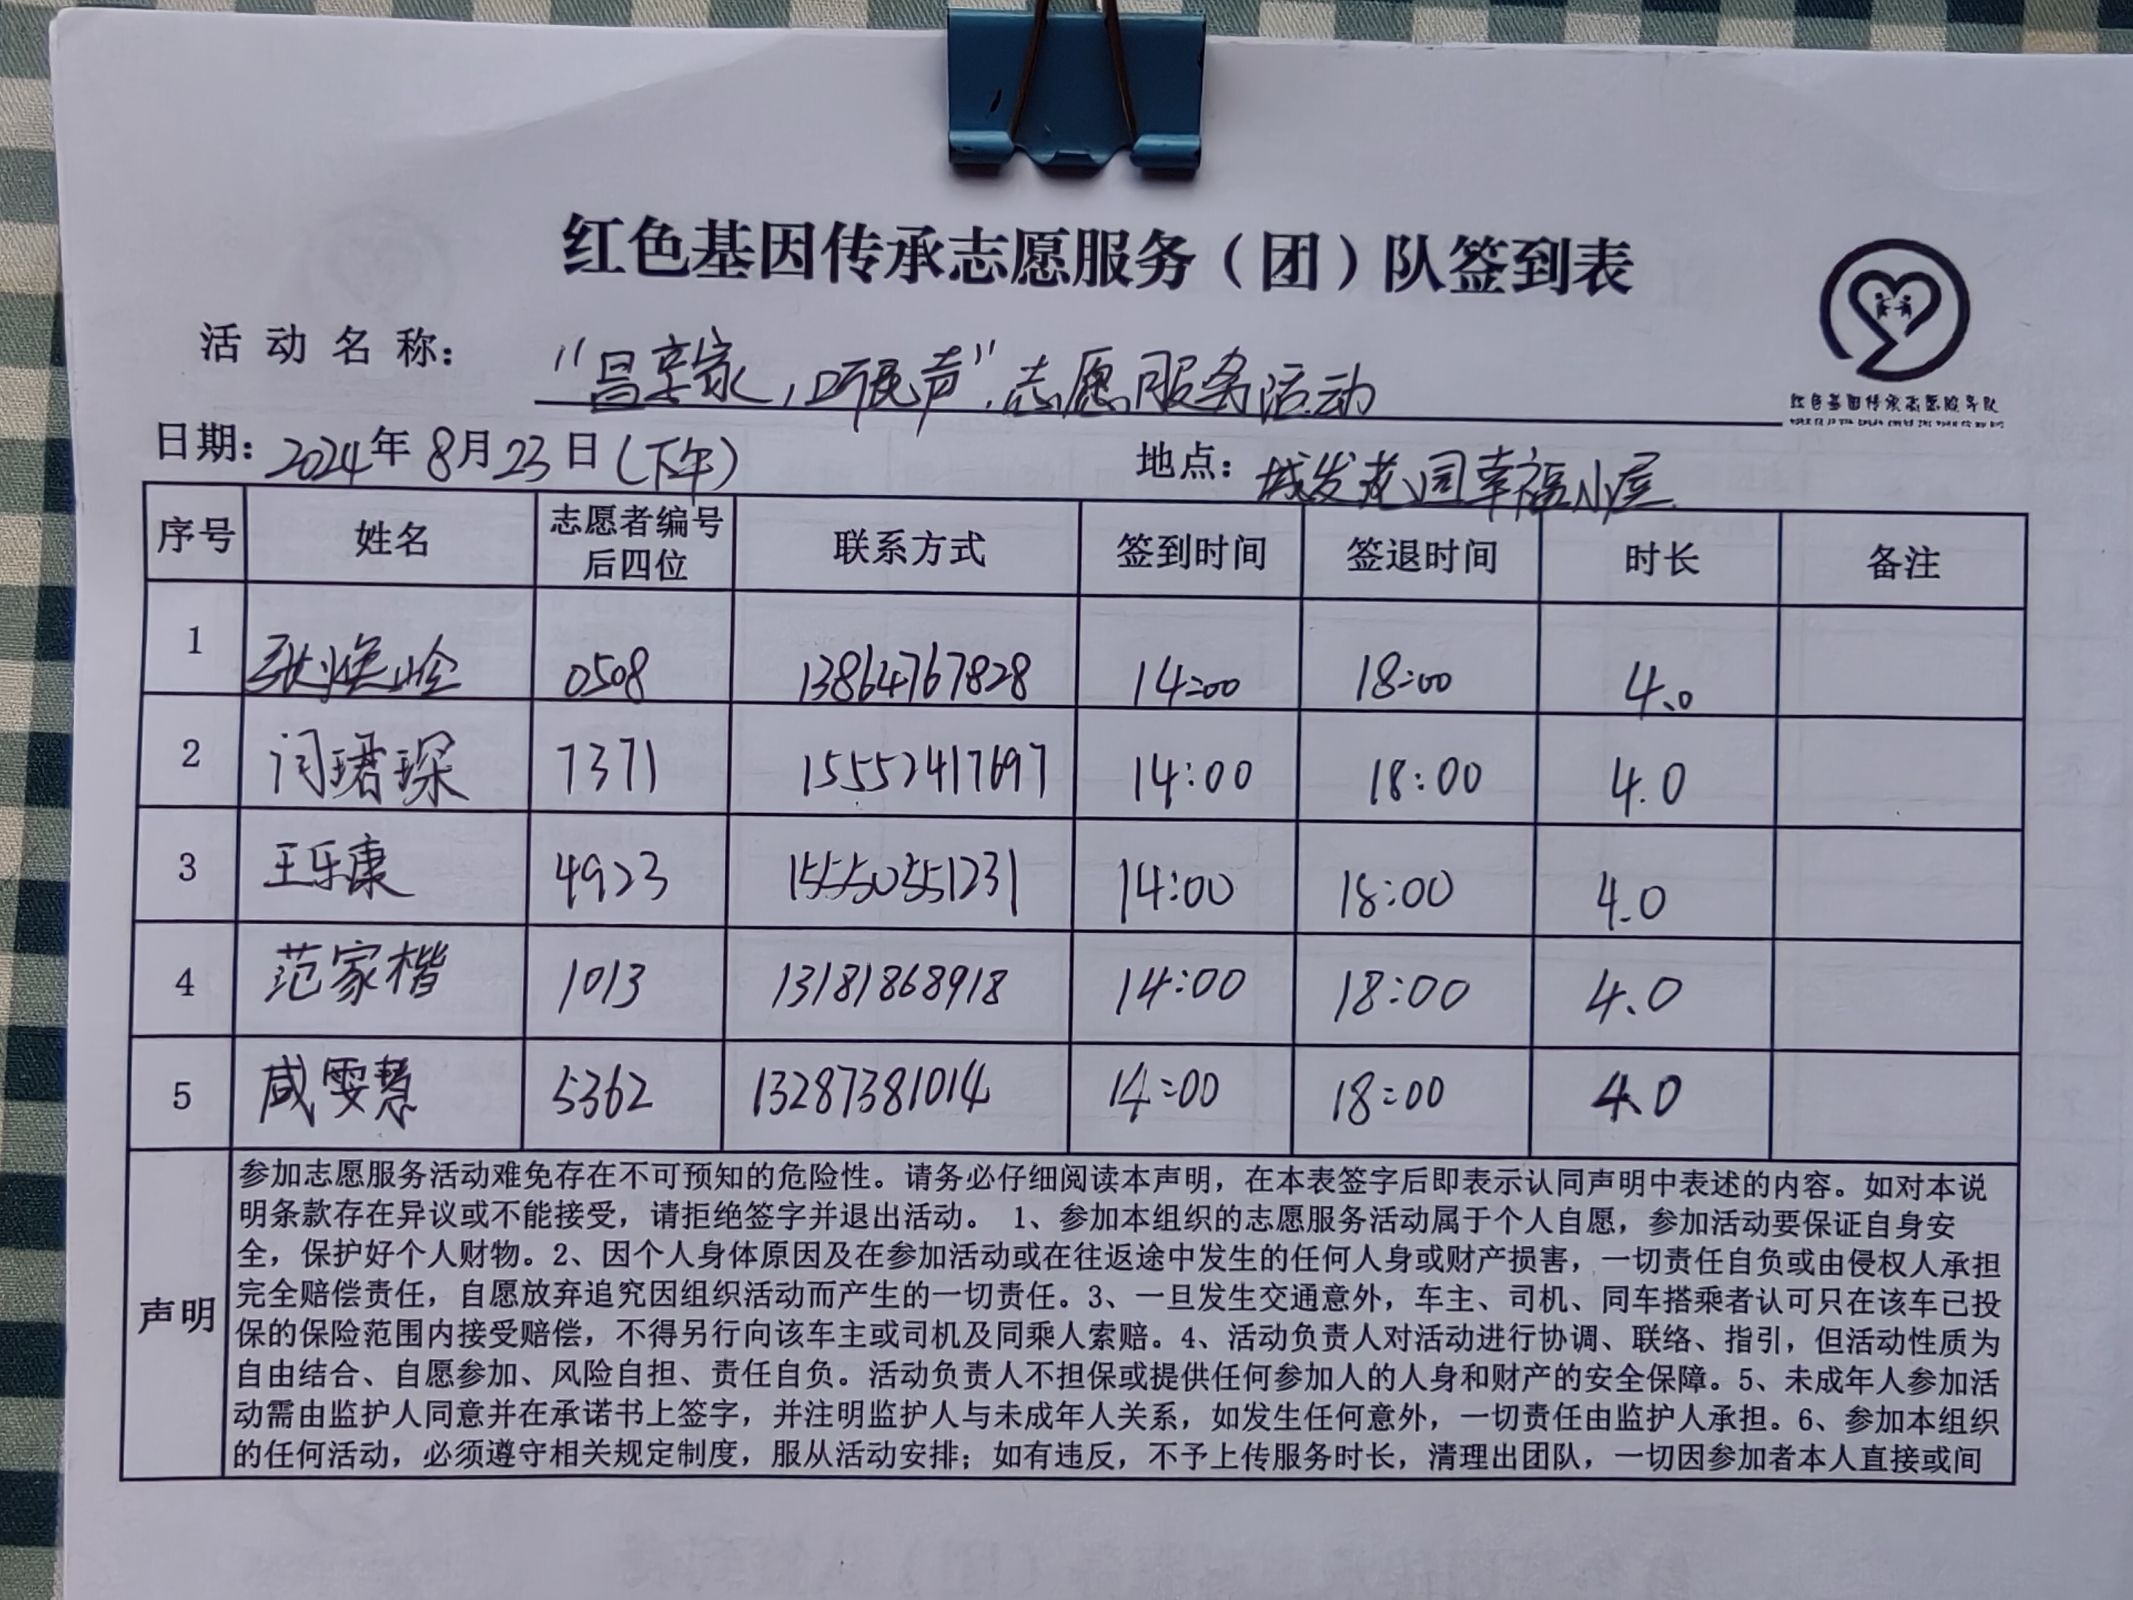 红色基因传承志愿服务（团）队签到表
活动名称： “昌享家，听民声”志愿服务活动
红色基因传承志愿服务队
日期：2024年8月23日（下午） 地点：城发花园幸福小屋
序号 姓名 志愿者编号后四位 联系方式 签到时间 签退时间 时长 备注
1 0508 13864767828 14:00 18:00 4.0
2 闫珺琛 7371 15552417697 14:00 18:00 4.0
3 王乐康 4923 15550551231 14:00 18:00 4.0
4 范家楷 1013 13181868918 14:00 18:00 4.0
5 咸雯慧 5362 13287381014 14:00 18:00 4.0
声明
参加志愿服务活动难免存在不可预知的危险性。请务必仔细阅读本声明，在本表签字后即表示认同声明中表述的内容。如对本说
明条款存在异议或不能接受，请拒绝签字并退出活动。 1、参加本组织的志愿服务活动属于个人自愿，参加活动要保证自身安
全，保护好个人财物。2、因个人身体原因及在参加活动或在往返途中发生的任何人身或财产损害，一切责任自负或由侵权人承担
完全赔偿责任，自愿放弃追究因组织活动而产生的一切责任。3、一旦发生交通意外，车主、司机、同车搭乘者认可只在该车已投
保的保险范围内接受赔偿，不得另行向该车主或司机及同乘人索赔。4、活动负责人对活动进行协调、联络、指引，但活动性质为
自由结合、自愿参加、风险自担、责任自负。活动负责人不担保或提供任何参加人的人身和财产的安全保障。5、未成年人参加活
动需由监护人同意并在承诺书上签字，并注明监护人与未成年人关系，如发生任何意外，一切责任由监护人承担。6、参加本组织
的任何活动，必须遵守相关规定制度，服从活动安排；如有违反，不予上传服务时长，清理出团队，一切因参加者本人直接或间